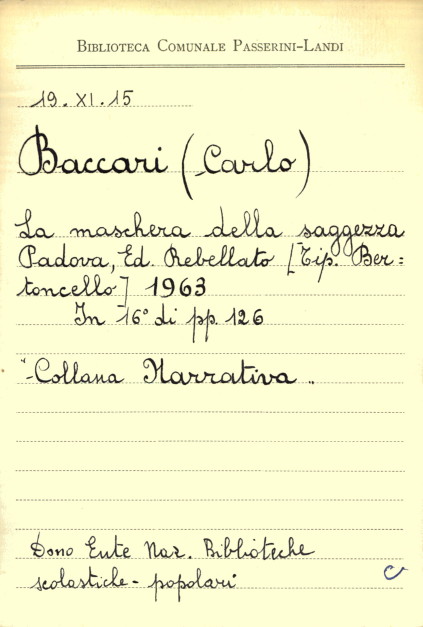 BIBLIOTECA COMUNALE PASSERINI-LANDI
19.XI.15
Baccari (Carlo)
La maschera della saggezza
Padova, Ed. Rebellato [Tip. Ber=
toncello] 1963
In 16° di pp. 126
"Collana Narrativa"
Dono Ente Naz. Biblioteche
scolastiche - popolari
C